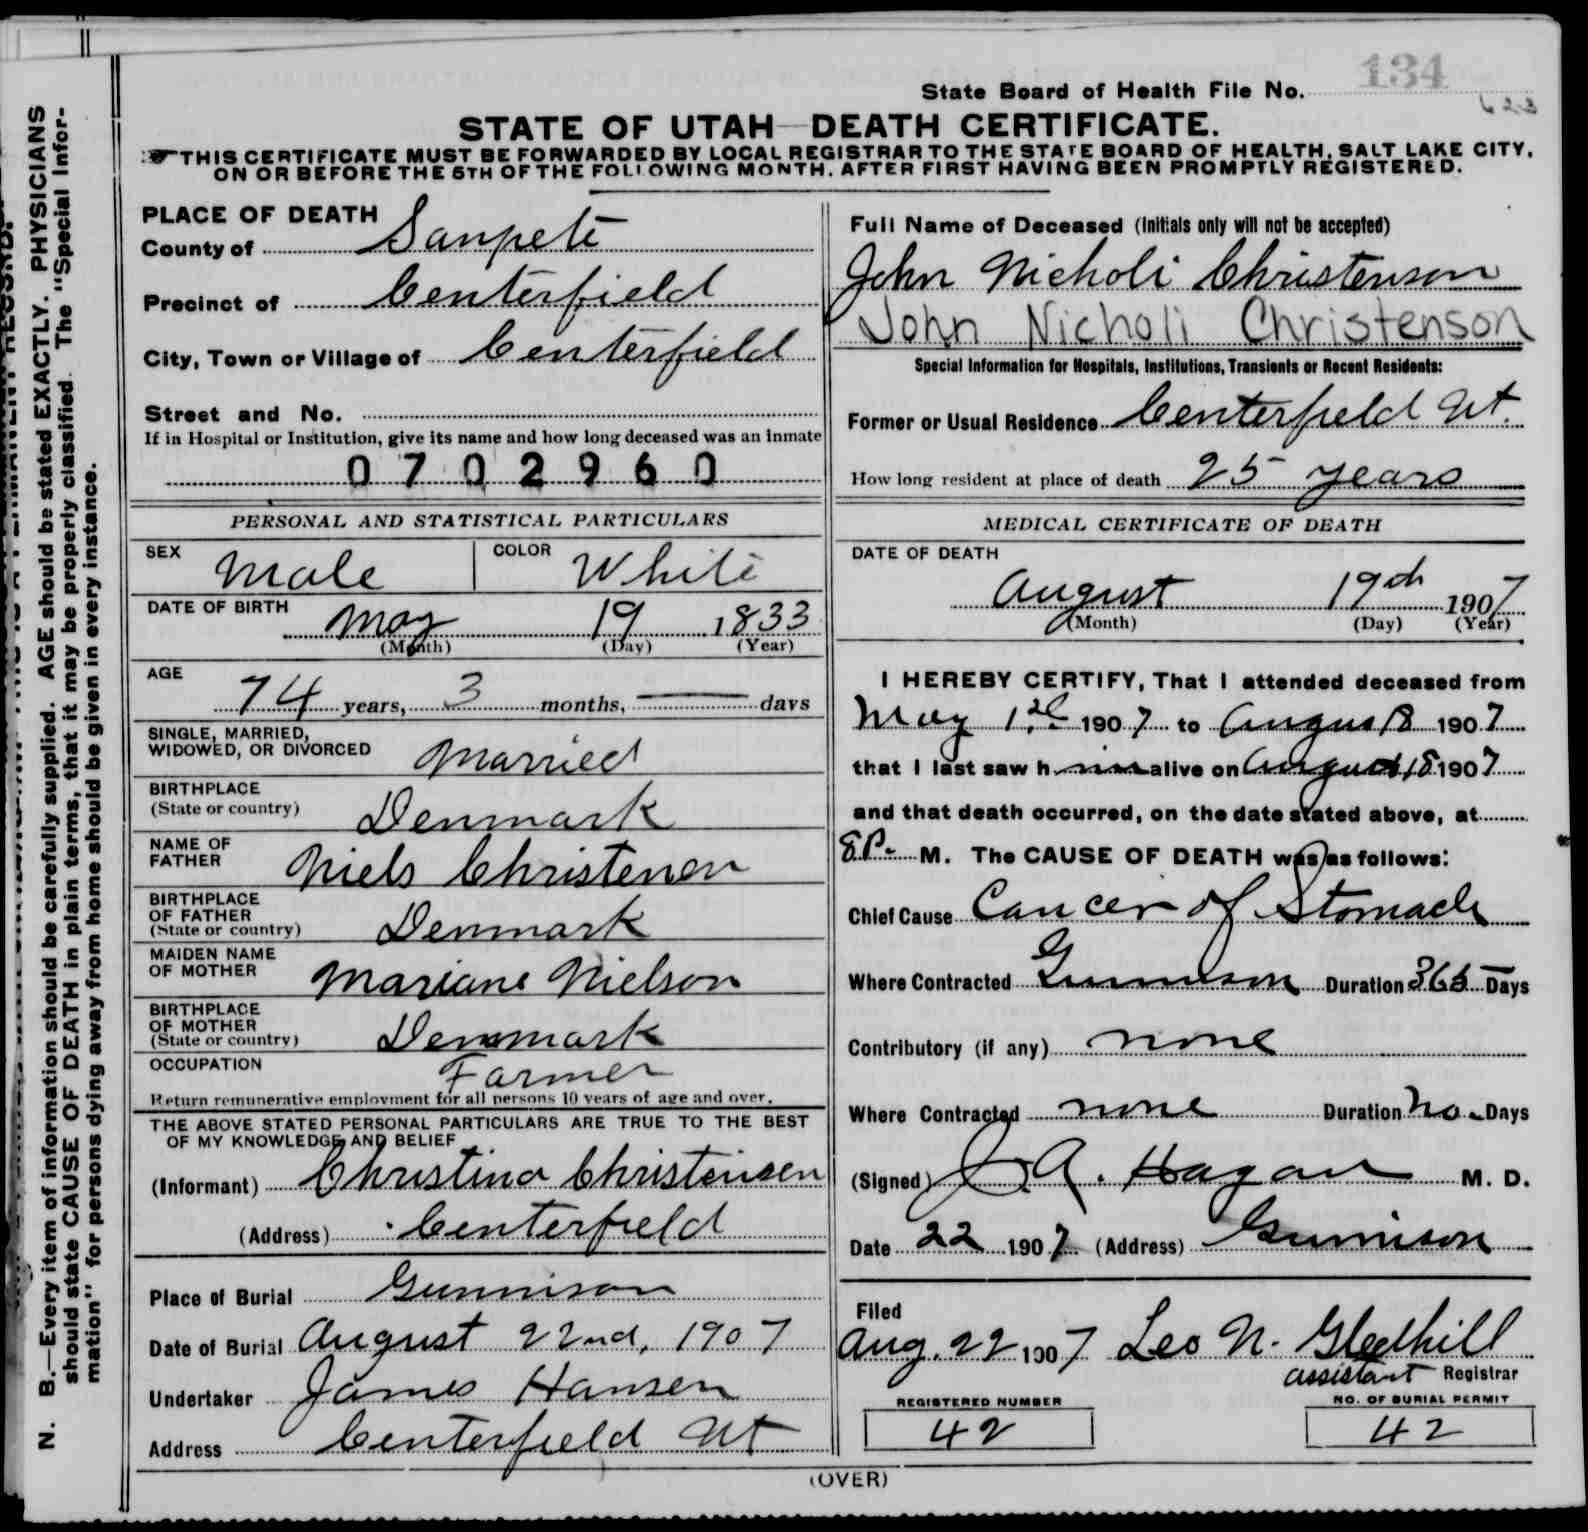 134
State Board of Health File No.
623
STATE OF UTAH—DEATH CERTIFICATE.
THIS CERTIFICATE MUST BE FORWARDED BY LOCAL REGISTRAR TO THE STATE BOARD OF HEALTH, SALT LAKE CITY,
ON OR BEFORE THE 5TH OF THE FOLLOWING MONTH, AFTER FIRST HAVING BEEN PROMPTLY REGISTERED.
PLACE OF DEATH
County of Sanpete
Precinct of Centerfield
City, Town or Village of Centerfield
Street and No.
If in Hospital or Institution, give its name and how long deceased was an inmate
0702960
PERSONAL AND STATISTICAL PARTICULARS
SEX Male COLOR White
DATE OF BIRTH May 19 1833
(Month) (Day) (Year)
AGE 74 years, 3 months, — days
SINGLE, MARRIED,
WIDOWED, OR DIVORCED Married
BIRTHPLACE
(State or country) Denmark
NAME OF
FATHER Niels Christensen
BIRTHPLACE
OF FATHER
(State or country) Denmark
MAIDEN NAME
OF MOTHER Mariane Nielson
BIRTHPLACE
OF MOTHER
(State or country) Denmark
OCCUPATION Farmer
Return remunerative employment for all persons 10 years of age and over.
THE ABOVE STATED PERSONAL PARTICULARS ARE TRUE TO THE BEST
OF MY KNOWLEDGE AND BELIEF
(Informant) Christina Christensen
(Address) Centerfield
Place of Burial Gunnison
Date of Burial August 22nd, 1907
Undertaker James Hansen
Address Centerfield Ut
Full Name of Deceased (Initials only will not be accepted)
John Nicholi Christenson
John Nicholi Christenson
Special Information for Hospitals, Institutions, Transients or Recent Residents:
Former or Usual Residence Centerfield Ut.
How long resident at place of death 25 years
MEDICAL CERTIFICATE OF DEATH
DATE OF DEATH
August 19th 1907
(Month) (Day) (Year)
I HEREBY CERTIFY, That I attended deceased from
May 1st 1907 to August 18 1907
that I last saw him alive on August 18 1907
and that death occurred, on the date stated above, at
8 P. M. The CAUSE OF DEATH was as follows:
Chief Cause Cancer of Stomach
Where Contracted Gunnison Duration 365 Days
Contributory (if any) none
Where Contracted none Duration no. Days
(Signed) J. A. Hagan M. D.
Date 22 1907 (Address) Gunnison
Filed
Aug. 22 1907 Leo N. Gledhill
assistant Registrar
REGISTERED NUMBER
42
NO. OF BURIAL PERMIT
42
(OVER)
N. B.—Every item of information should be carefully supplied. AGE should be stated EXACTLY. PHYSICIANS
should state CAUSE OF DEATH in plain terms, that it may be properly classified. The "Special Infor-
mation" for persons dying away from home should be given in every instance.